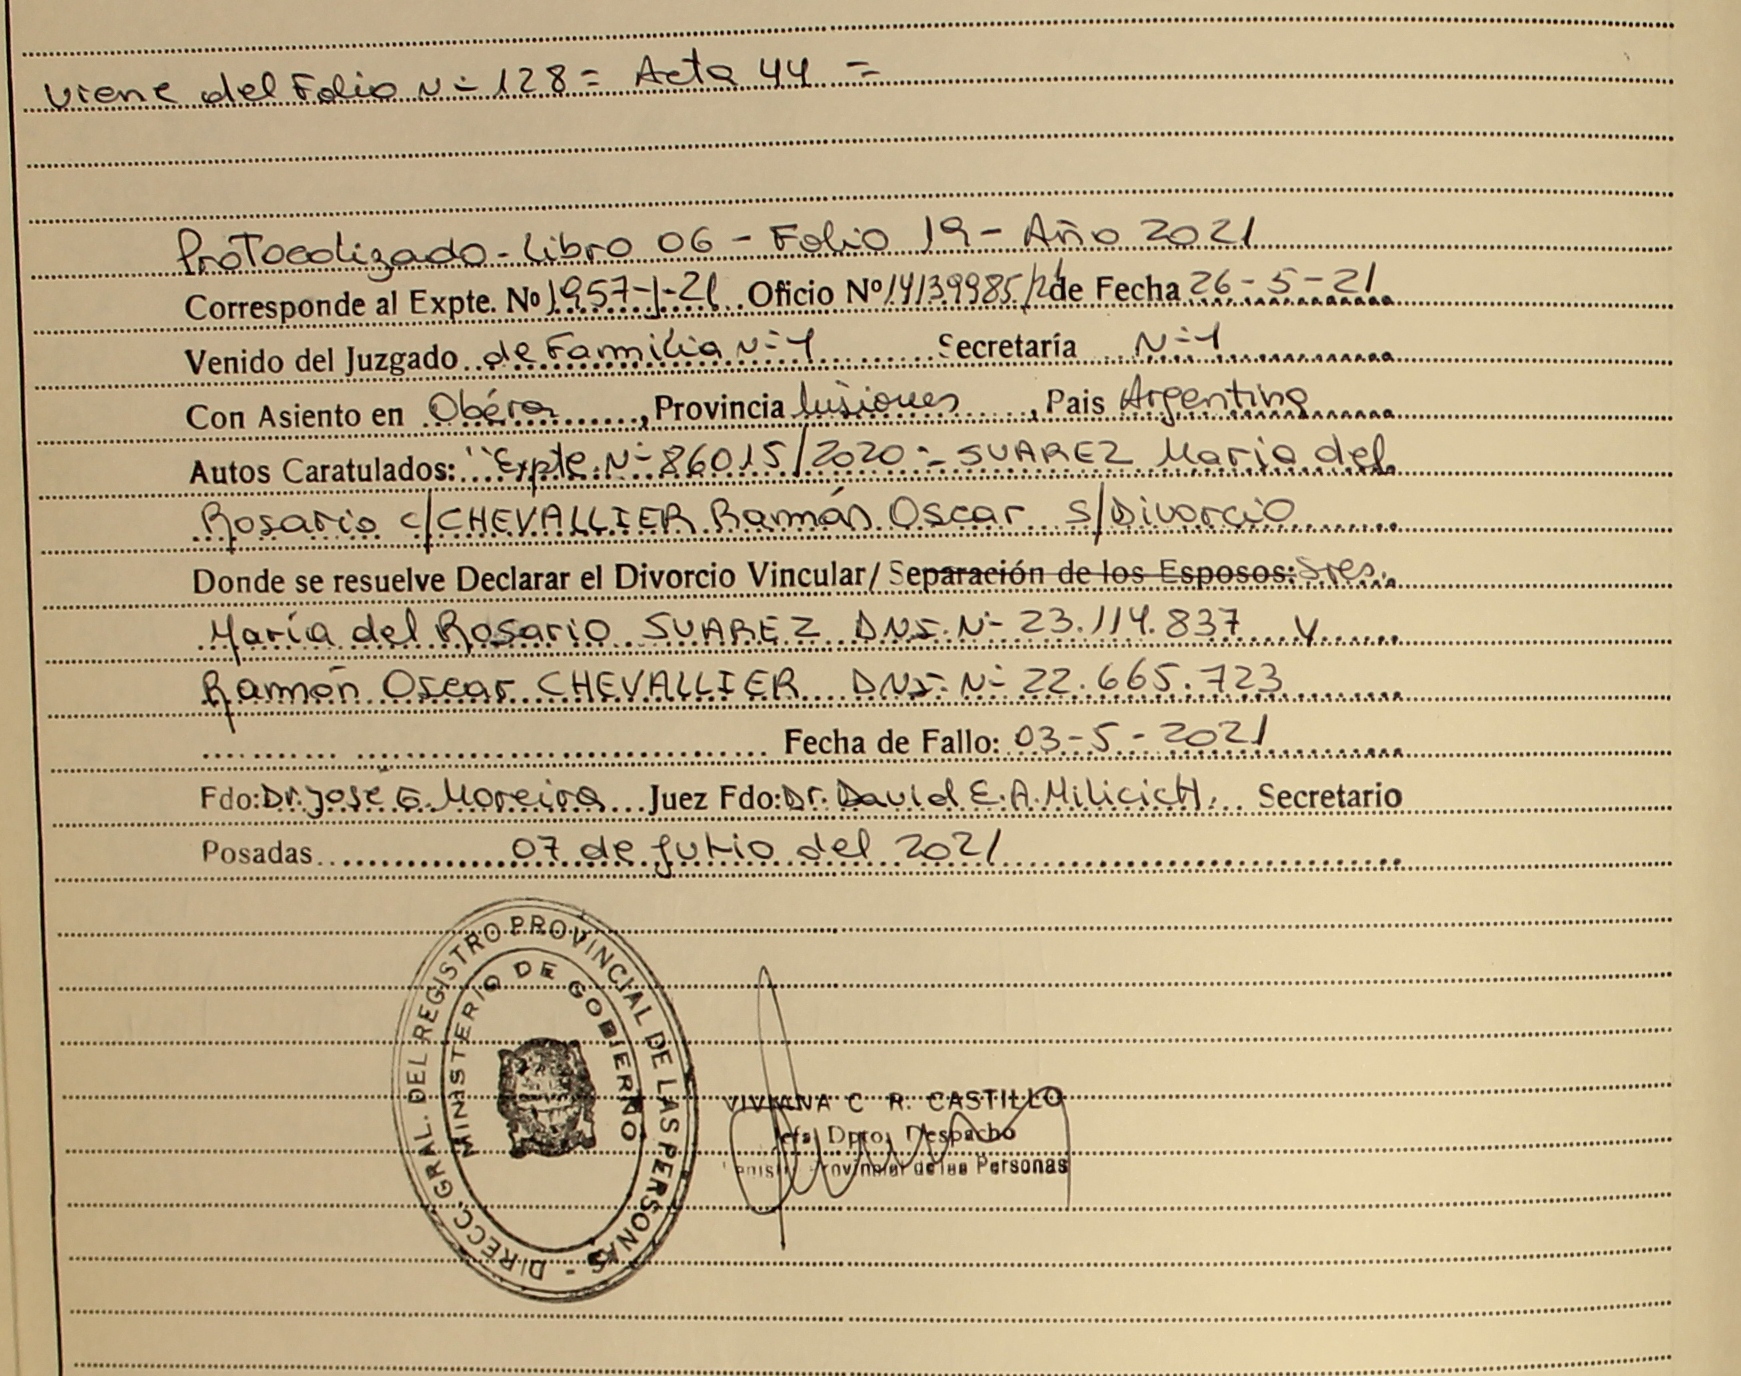 Viene del Folio N= 128= Acta 44 =
Protocolizado-Libro 06 - Folio 19 - Año 2021
Corresponde al Expte. Nº 1957-J-21 Oficio Nº 14139985/21 de Fecha 26-5-21
Venido del Juzgado de Familia N=1 Secretaría N=1
Con Asiento en Oberá, Provincia Misiones, Pais Argentina
Autos Caratulados: "Expte. N= 86015/2020 = SUAREZ María del
Rosario c/CHEVALLIER Ramón Oscar S/Divorcio
Donde se resuelve Declarar el Divorcio Vincular/ Separación de los Esposos: Sres.
María del Rosario SUAREZ DNI. N= 23.114.837 y
Ramón Oscar CHEVALLIER DNI. N= 22.665.723
Fecha de Fallo: 03-5-2021
Fdo: Dr. José G. Moreira Juez Fdo: Dr. David E. A. Milicich. Secretario
Posadas 07 de Julio del 2021
DIRECC. GRAL. DEL REGISTRO PROVINCIAL DE LAS PERSONAS -
MINISTERIO DE GOBIERNO
VIVIANA C R. CASTILLO
Jefa Dpto. Despacho
Provincial de las Personas